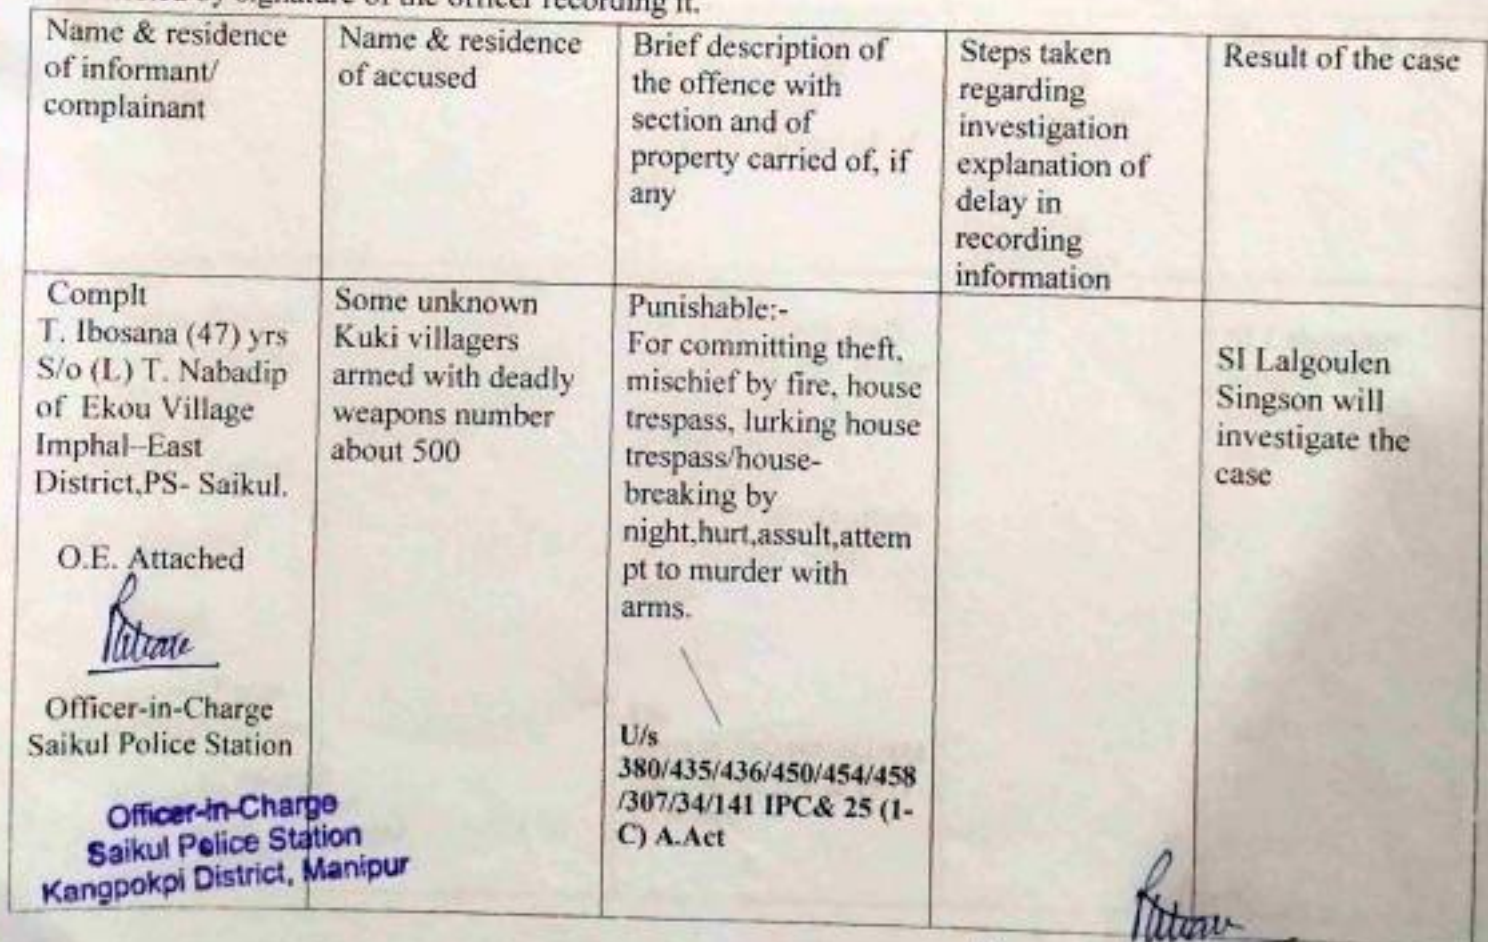 by signature of the officer recording it.
Name & residence
of informant/
complainant
Name & residence
of accused
Brief description of
the offence with
section and of
property carried of, if
any
Steps taken
regarding
investigation
explanation of
delay in
recording
information
Result of the case
Complt
T. Ibosana (47) yrs
S/o (L) T. Nabadip
of Ekou Village
Imphal–East
District,PS- Saikul.
O.E. Attached
Officer-in-Charge
Saikul Police Station
Officer-in-Charge
Saikul Police Station
Kangpokpi District, Manipur
Some unknown
Kuki villagers
armed with deadly
weapons number
about 500
Punishable:-
For committing theft,
mischief by fire, house
trespass, lurking house
trespass/house-
breaking by
night,hurt,assult,attem
pt to murder with
arms.
U/s
380/435/436/450/454/458
/307/34/141 IPC& 25 (1-
C) A.Act
SI Lalgoulen
Singson will
investigate the
case